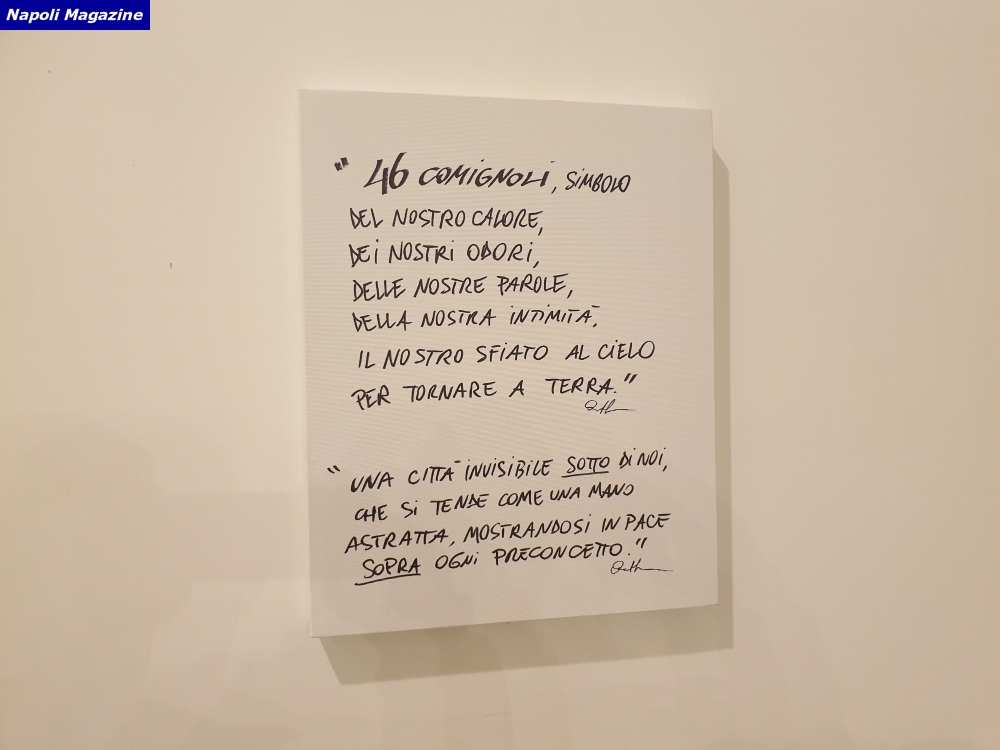 Napoli Magazine
" 46 COMIGNOLI, SIMBOLO
DEL NOSTRO CALORE,
DEI NOSTRI ODORI,
DELLE NOSTRE PAROLE,
DELLA NOSTRA INTIMITÀ.
IL NOSTRO SFIATO AL CIELO
PER TORNARE A TERRA."
"UNA CITTÀ INVISIBILE SOTTO DI NOI,
CHE SI TENDE COME UNA MANO
ASTRATTA, MOSTRANDOSI IN PACE
SOPRA OGNI PRECONCETTO."